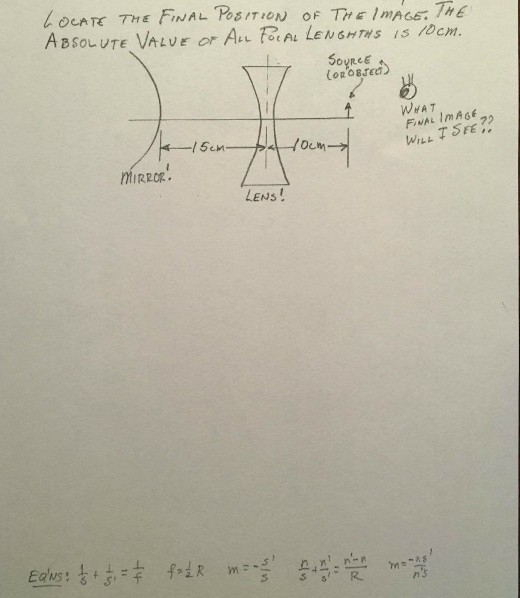 LOCATE THE FINAL POSITION OF THE IMAGE. THE
ABSOLUTE VALUE OF ALL FOCAL LENGHTHS IS 10cm.
SOURCE
(OR OBJECT)
WHAT
FINAL IMAGE
WILL I SEE??
15cm
10cm
MIRROR!
LENS!
EQ'NS: 1/s + 1/s' = 1/f f=½R m = -s'/s n/s + n'/s' = n'-n/R m = -ns'/n's